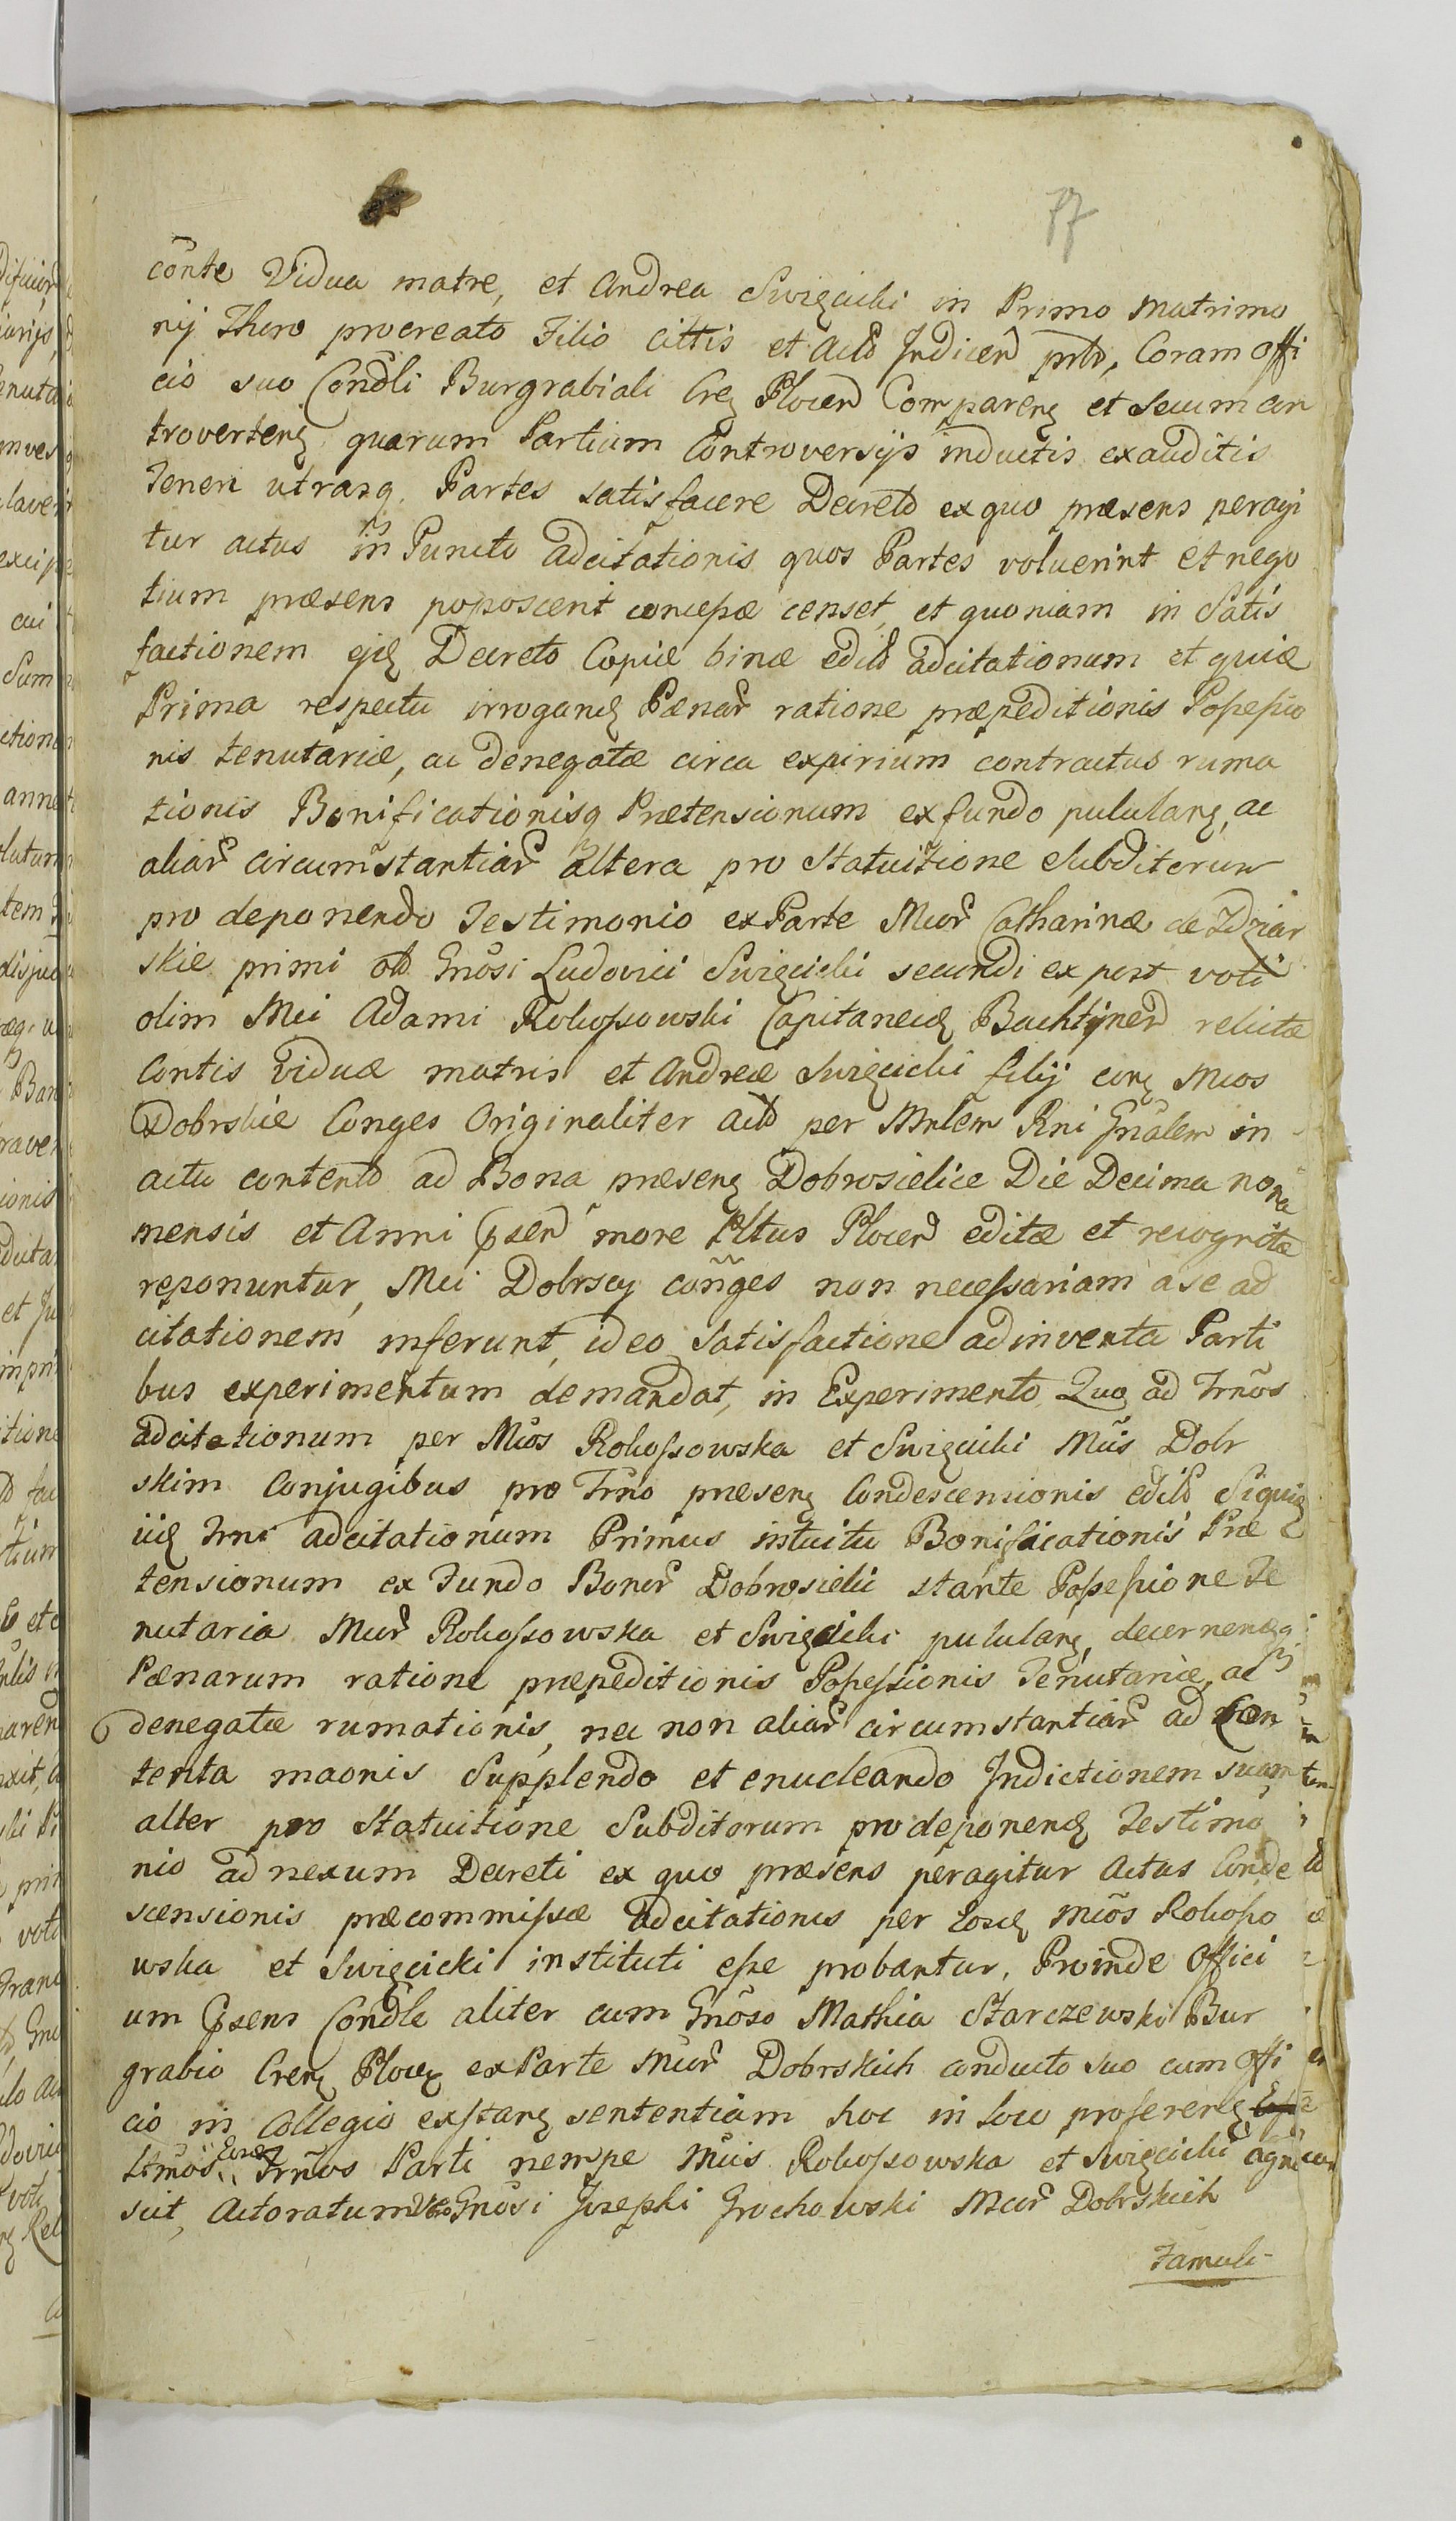 77
cõnte Vidua matre, et Andrea Swięcicki in Primo Matrimo
nij Thoro procreato Filio cittis et Actõ Indicen prtõ, Coram Offi
cio suo Condli Burgrabiali Cren Plocen Comparen et secum con
troverten quarum Partium Controversijs inductis exauditis
Teneri utrasq. Partes satisfacere Decreto ex quo præsens peragi
tur actus in Puncto adcitationis quos Partes voluerint et nego
tium præsens poposcerit concessæ censet, et quoniam in Satis
factionem ejd Decreto Copiæ binæ edit adcitationum et quiæ
Prima respectu irrogand Pænar ratione præpeditionis Possessio
nis tenutariæ, ac denegatæ circa expirium contractus ruma
tionis Bonificationisq Prætensionum ex fundo pululan, ac
aliar circumstantiar altera pro Statuitione Subditorum
pro deponendo Testimonio ex Parte Mcor Catharinæ de Zdziar
skie primi olt Gnosi Ludovici Swięcicki secundi ex post voti
olim Mci Adami Rokossowski Capitaneid Bachtynen relictæ
Contis viduæ matris et Andreæ Swięcicki filij con Mcos
Dobrskie Conges Originaliter act per Mnlem Rni Gnalem in
actu content ad Bona præsen Dobrosielice Die Decima nona
mensis et Anni psen more Pltus Plocen editæ et recognitæ
reponuntur, Mci Dobrscy conges non necessariam a se ad
citationem inferunt, ideo satisfactione adinventa Parti
bus experimentum demandat, in Experimento Quo ad Trnos
adcitationum per Mcos Rokossowska et Swięcicki Mcis Dobr
skim Conjugibus pro Trno præsen Condescensionis edit Siquid
iid Trni adcitationum Primus intuitu Bonificationis Præ
tensionum ex Fundo Bonor Dobrosielic stante Possessione Te
nutaria Mcor Rokossowska et Swięcicki pululan, decernendq
Pænarum ratione præpeditionis Possessionis Tenutariæ, ac
denegatæ rumationis, nec non aliar circumstantiar ad Con
tenta maonis Supplendo et enucleando Indictionem suam
alter pro Statuitione Subditorum pro deponend Testimo
nio ad nexum Decreti ex quo præsens peragitur Actus Conde
scensionis præcommissæ adcitationis per Eosd Mcos Rokosso
wska et Swięcicki instituti esse probantur, Proinde Offici
um psens Condle aliter cum Gnoso Mathia Starczewski Bur
grabio Cren Plocen ex Parte Mcor Dobrskich conducto suo cum Offi
cio in Collegio exstan sententiam hoc in loco proferen
Ltmos Eosd Trnos Parti nempe Mcis Rokossowska et Swięcicki agno
scit, Actoratum Gnosi Josephi Grochowski Mcor Dobrskich
Famuli